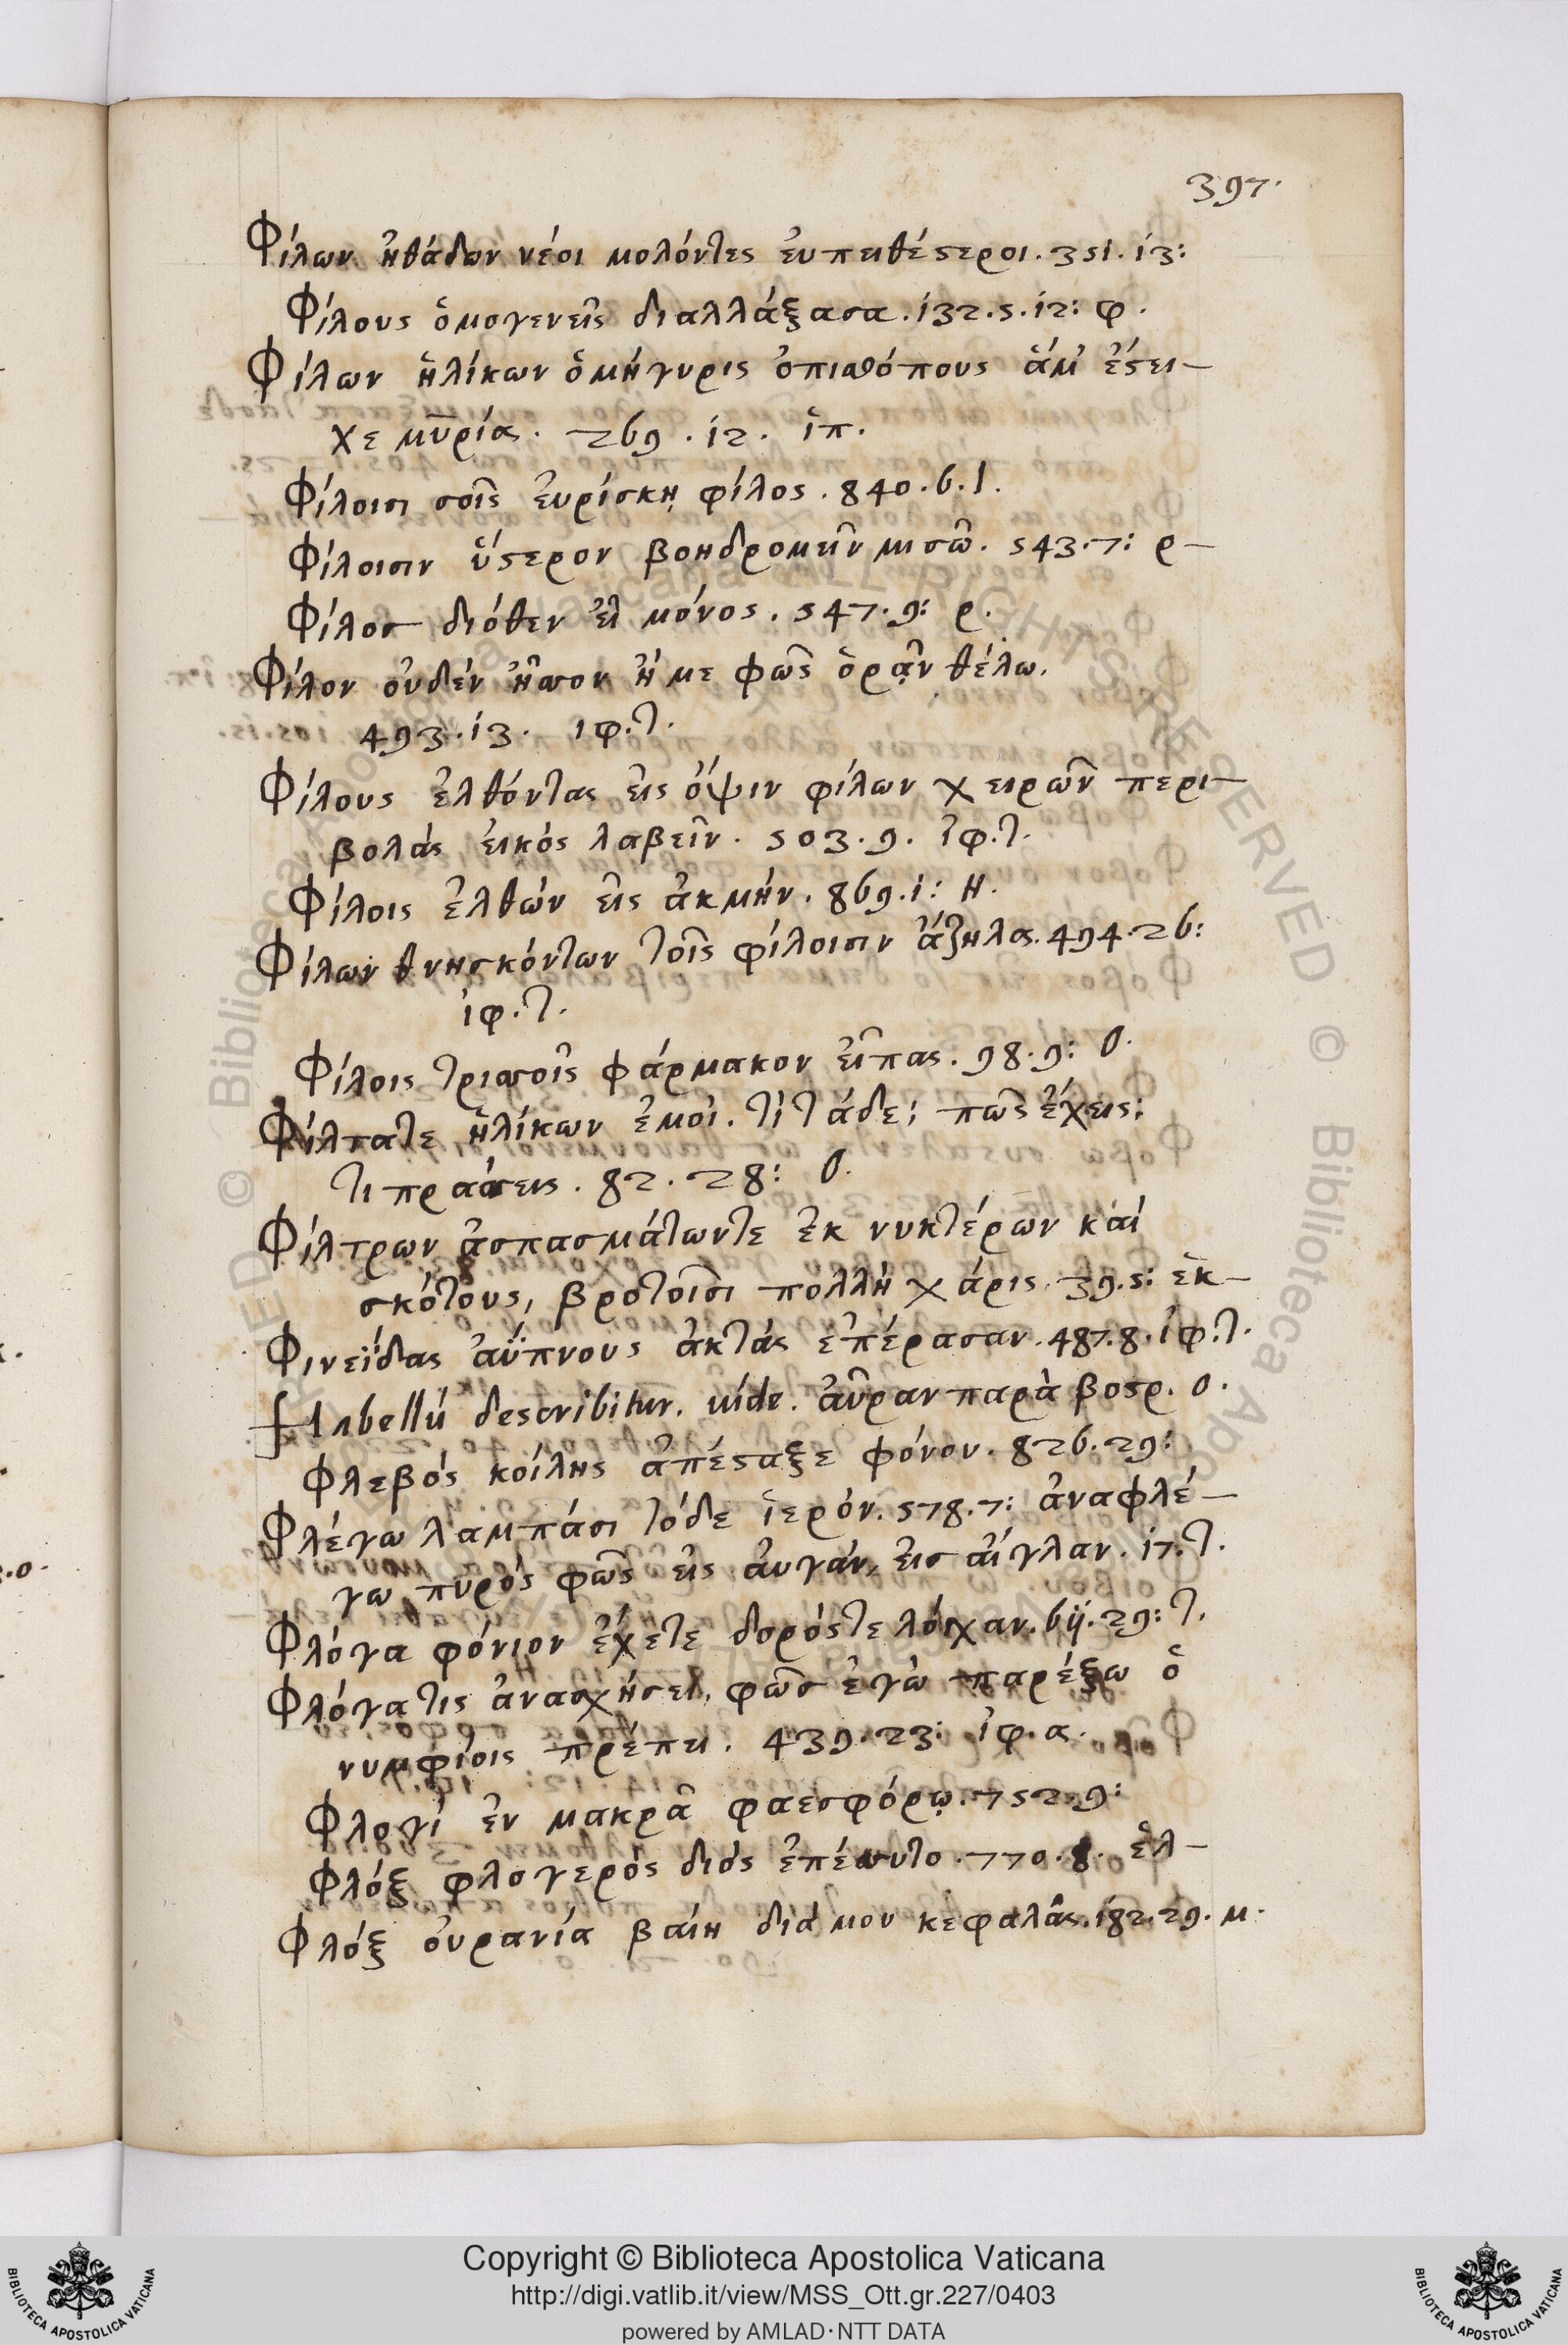 397.
Φίλων ἠθάδων νέοι μολόντες ἐυπειθέςεροι. 351. 13:
Φίλους ὁμογενεῖς διαλλάξασα. 132. 5. 12: φ.
Φίλων ἡλίκων ὁμήγυρις ὀπισθόπους ἅμ' ἔςει-
χε μυρία. 269. 12. ἱπ.
Φίλοισι σοῖς ἐυρίσκῃ φίλος. 840. 6. 1.
Φίλοισιν ὕςερον βοηδρομεῖν μισῶ. 543. 7: ρ-
Φίλος διόθεν εἶ μόνος. 547. 9: ρ.
Φίλον ὀυδέν ἧσσον ἤ με φῶς ὁρᾷν θέλω.
493. 13. ιφ. τ.
Φίλους ἐλθόντας ἐις ὄψιν φίλων χειρῶν περι-
βολάς ἐικός λαβεῖν. 503. 9. ἰφ. τ.
Φίλοις ἐλθών ἐις ἀκμήν. 869. 1: Η.
Φίλων θνησκόντων τοῖς φίλοισιν ἄζηλα. 494. 26:
ἰφ. τ.
Φίλοις τρισσοῖς φάρμακον εἶπας. 98. 9: ο.
Φίλτατε ἡλίκων ἐμοί. τί τάδε; πῶς ἔχεις;
τι πράσσεις. 82. 28: ο.
Φίλτρων ἀσπασμάτωντε ἐκ νυκτέρων και
σκότους, βροτοῖσι πολλή χάρις. 39. 5: ἑκ-
Φινεΐδας ἀΰπνους ἀκτάς ἐπέρασαν. 487. 8. ἰφ. τ.
flabellū describitur. uide. ἀῦραν παρὰ βοςρ. ο.
Φλεβός κοίλης ἀπέςαξε φόνον. 826. 29:
Φλέγω λαμπάσι τόδε ἱερόν. 578. 7: ἀναφλέ-
γω πυρός φῶς ἐις ἀυγάν, ἐις αἴγλαν. 17. τ.
Φλόγα φόνιον ἔχετε δορόςτε λόγχαν. 611. 29: τ.
Φλόγατις ἀνασχήσει. φῶς ἐγώ παρέξω ὁ
νυμφίοις πρέπει. 439. 23: ἰφ. α.
Φλογί ἐν μακρᾶ φαεσφόρῳ. 752. 9:
Φλόξ φλογερός διός ἐπέσσυτο. 770. 8. ἑλ-
Φλόξ ὀυρανία βαίη διά μου κεφαλᾶς. 182. 29. μ.
Copyright © Biblioteca Apostolica Vaticana
http://digi.vatlib.it/view/MSS_Ott.gr.227/0403
powered by AMLAD·NTT DATA